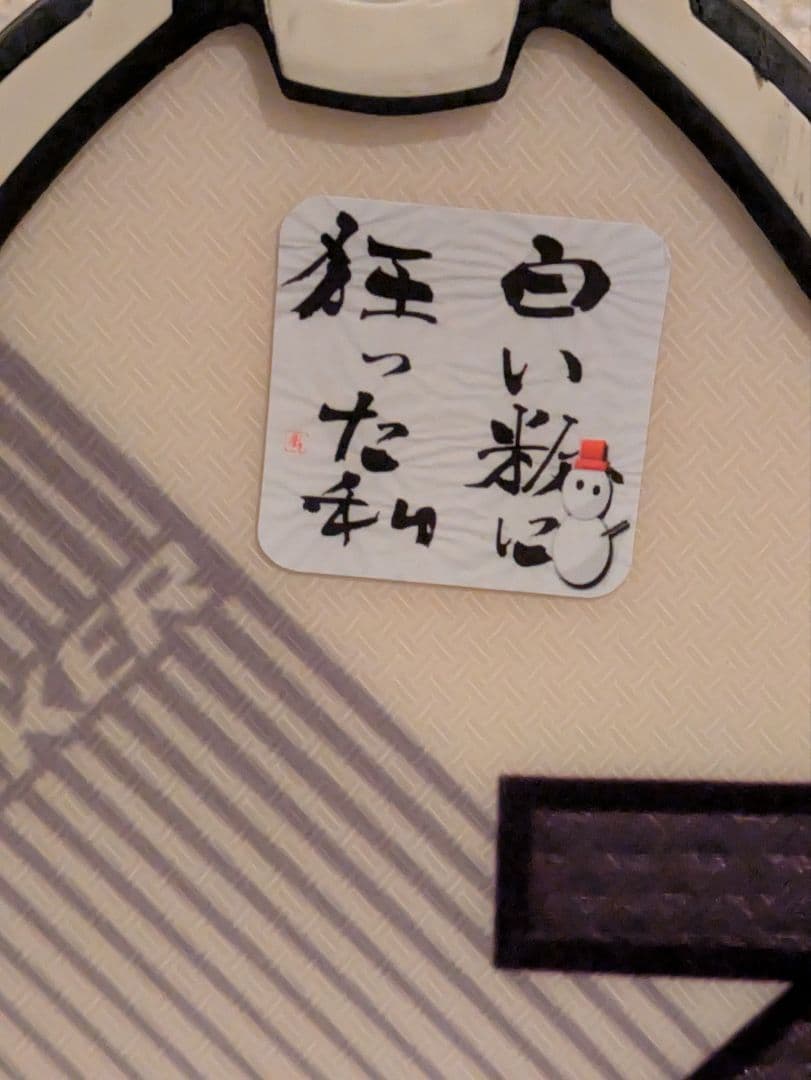 白い粉に
狂った私